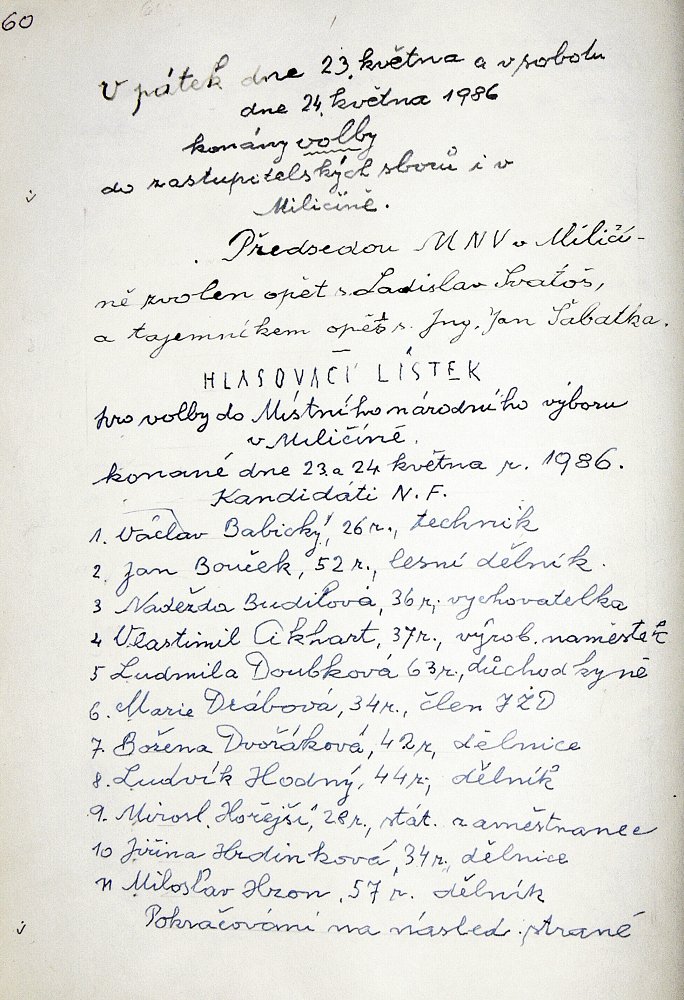 60
V pátek dne 23. května a v sobotu
dne 24. května 1986
konány volby
do zastupitelských sborů i v
Miličíně.
Předsedou MNV v Miličí-
ně zvolen opět s. Ladislav Svatoš,
a tajemníkem opět s. Ing. Jan Šabatka.
HLASOVACÍ LÍSTEK
pro volby do Místního národního výboru
v Miličíně.
konané dne 23. a 24 května r. 1986.
Kandidáti N.F.
1. Václav Babický, 26 r., technik
2. Jan Bouček, 52 r., lesní dělník.
3 Naděžda Budilová, 36 r., vychovatelka
4 Vlastimil Cikhart, 37 r., výrob. naměstek
5 Ludmila Doubková 63 r., důchodkyně
6. Marie Drábová, 34 r., člen JZD
7. Božena Dvořáková, 42 r, dělnice
8. Ludvík Hodný, 44 r., dělník
9. Mirosl. Hořejší, 28 r., stát. zaměstnanec
10 Jiřina Hrdinková, 34 r., dělnice
11 Miloslav Hron, 57 r. dělník
Pokračování na násled. straně